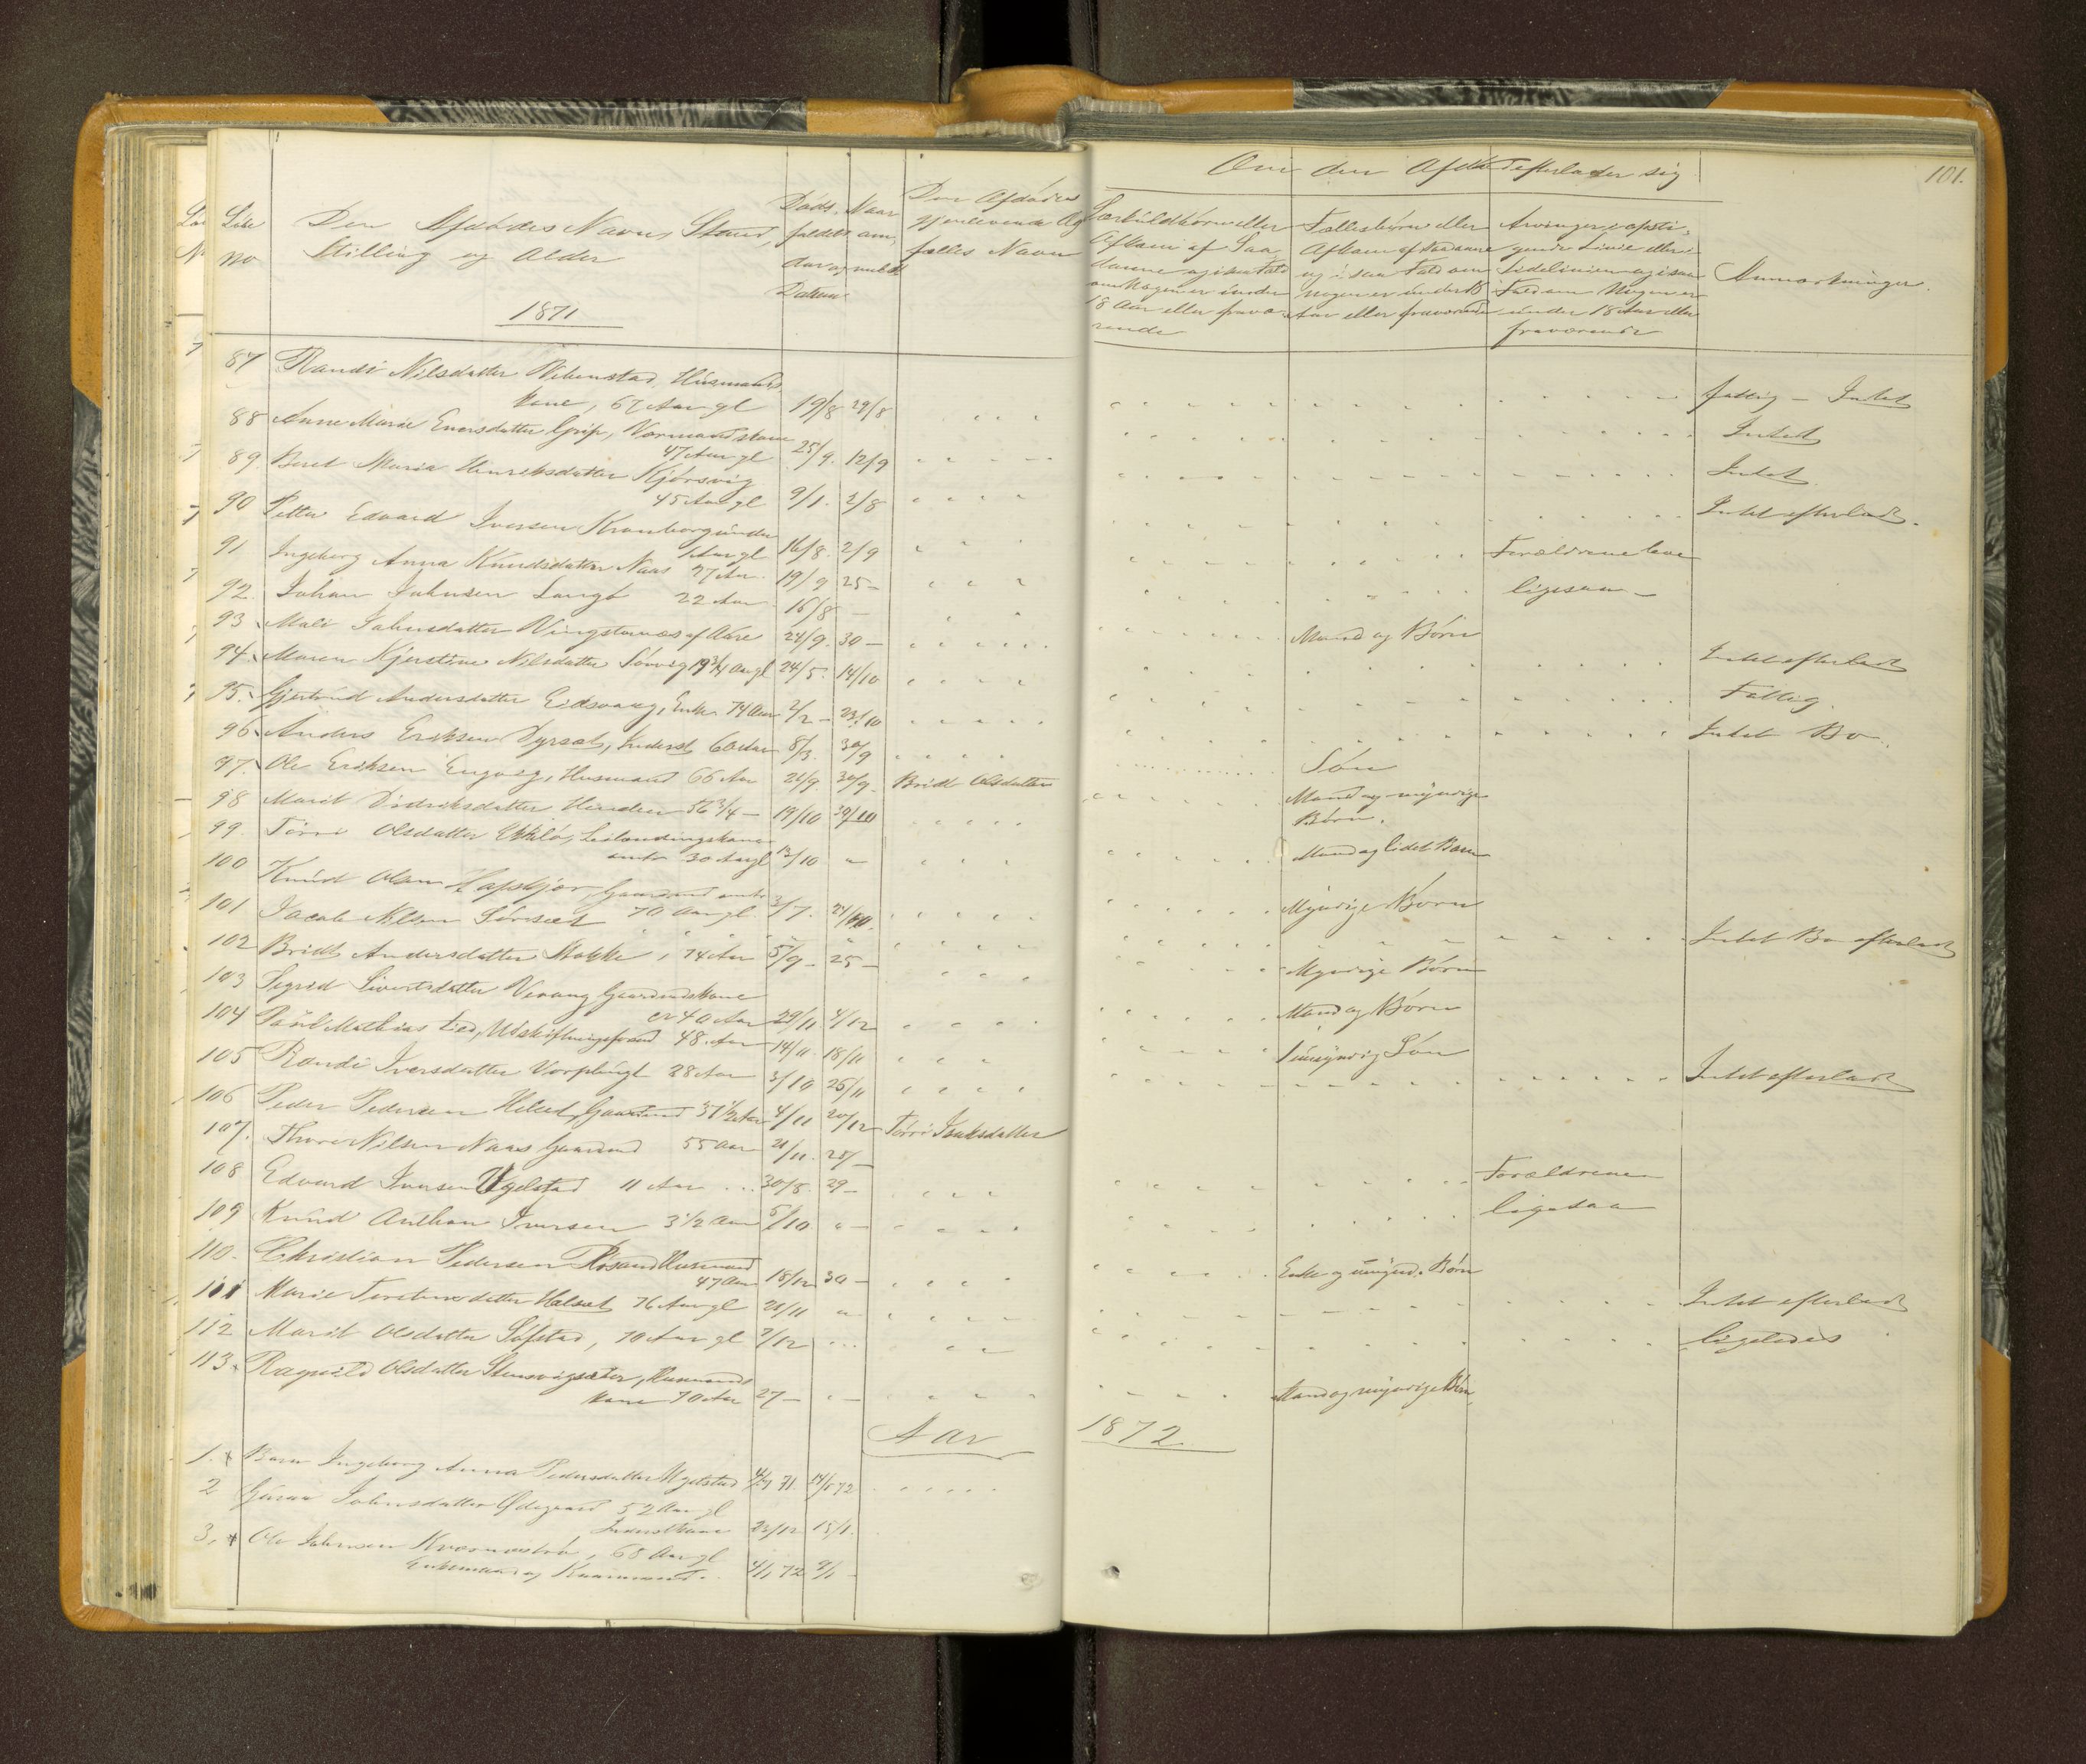 101.
Løbe
No
Den Afdødes Navn, Stand,
Stilling og Alder
1871
Døds-
faldets
Aar og
Datum
Naar
an-
meldt
Den Afdødes
gjenlevende Æg
tefælles Navn
Om den Afdøde efterlader sig
Særkuldbørn eller
Afkom af Saa-
danne og i saa Fald
om Nogen er under
18 Aar eller fravæ-
rende
Fællesbørn eller
Afkom af Saadanne
og i saa Fald om
nogen er under 18
Aar eller fraværende
Arvinger i opsti-
gende Linie eller i
Sidelinien og i saa
Fald om Nogen er
under 18 Aar eller
fraværende
Anmærkninger.
87 Randi Nilsdatter Vebenstad, Husmands
kone, 67 Aar gl 19/8 29/8 fattig - Intet
88 Anne Marie Enersdatter Grip, Normandskone
47 Aar gl 25/9. 12/9 Intet
89. Beret Maria Henriksdatter Kjørsvig
45 Aar gl 9/1. 2/8 Intet.
90 Petter Edvard Iversen Kranborgunder
1 Aar gl 16/8. 2/9 Intet efterladt.
91 Ingeborg Anna Knudsdatter Naas 27 Aar. 19/9 25- Forældrene leve
92. Johan Johnsen Langø 22 Aar 16/8 - ligesaa -
93 Mali Johnsdatter Vingstenæs af Aare 24/9. 30 - Mand og Børn
94. Maren Kjerstine Nilsdatter Sørvig 19 3/4 Aar gl 24/5. 14/10 Intet efterladt
95. Gjertrud Andersdatter Eidsvaag, Enke 74 Aar 2/2 - 23/10 Fattig.
96 Anders Eriksen Dyrsæt, Inderst 60 Aar 8/3. 30/9 Intet Bo.
97. Ole Eriksen Engvig, Husmand 66 Aar 26/9. 30/9. Bridt Olsdatter Søn
98 Marit Didriksdatter Henden 56 3/4 - 19/10 30/10 Mand og myndige
Børn.
99. Førri Olsdatter Ekkilø, Leilændingskone
omtr 30 Aar gl 13/10 " Mand og lidet Barn
100 Knud Olsen Hapskjær, Gaardmd omtr
70 Aar gl. 3/7. 24/10. Myndige Børn
101 Jacob Nilsen Sørsæt " " " " Intet Bo efterladt
102 Bridt Andersdatter Stokke, 74 Aar 5/9 - 25 - Myndige Børn
103 Sigrid Sivertsdatter Vevang Gaardmdskone
er 40 Aar 29/11 4/12 Mand og Børn
104 Paul Mathias Lied, Udskiftningsformd 48. Aar 14/11. 18/11 1 umyndig Søn
105 Randi Iversdatter Vorphaugl 28 Aar 3/10 26/11 Intet efterladt
106 Peder Pedersen Helset, Gaardmd 37 1/2 Aar 4/11 20/12 Førri Isaksdatter
107. Thore Nilsen Naas Gaardmd 55 Aar 21/11. 25/-
108 Edvard Iversen Ugelstad 11 Aar 30/8 29- Forældrene
109 Knud Anthon Iversen 3 1/2 Aar 5/10 " - ligesaa
110. Christian Pedersen Rosand Husmand
47 Aar 18/12 30 - Enke og umynd. Børn
111 Marie Torstensdatter Helset 76 Aar gl 28/11 " Intet efterladt
112 Marit Olsdatter Søfstad, 70 Aar gl 9/12 ligeledes
113. Ragnild Olsdatter Stensvigsæter, Husmands
kone 70 Aar 27 - " - Mand og myndige Børn
Aar 1872.
1. Barn Ingeborg Anna Pedersdatter Ugelstad 71. 14/1 72
2 Guran Johnsdatter Ødegaard 52 Aar gl
Inderstkone 23/12 15/1.
3. Ole Johnsen Kværnestrø, 68 Aar gl
Enkemand og Kaarmand. 4/1 72 9/1 -